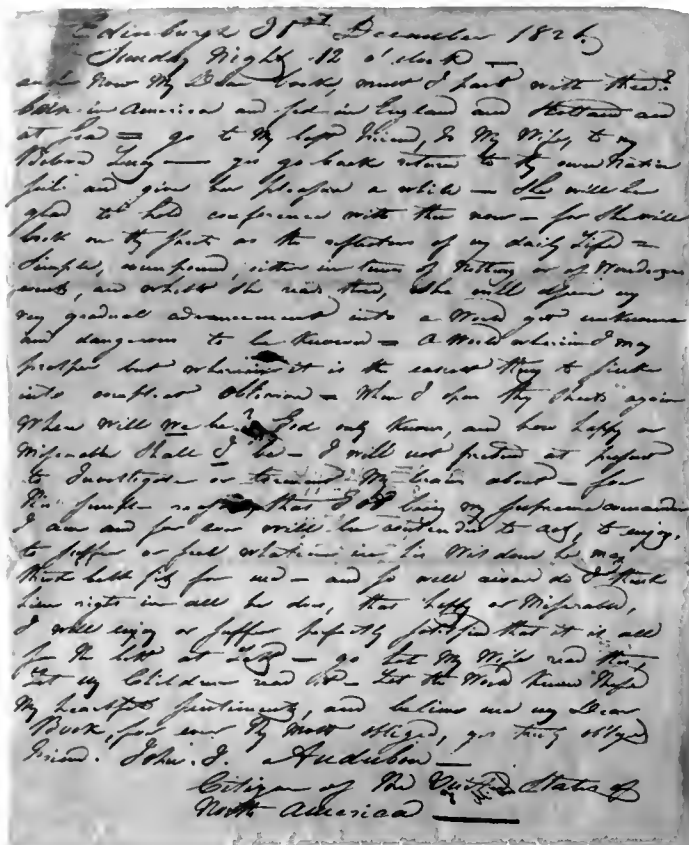 Edinburgh 31st December 1826
Sunday Night 12 o'clock —
and Now My Dear book, must I part with thee?
book in America and fed in England and Scotland and
at Sea = go to My best Friend, to My Wife, to my
Beloved Lucy — yes go back return to thy own Native
soil and give her pleasure a while — She will be
glad to hold conference with thee now — for She will
look on thy Sheets as the reflectors of my daily Life =
Simple, either in times of Nothing or of Wondrous
events, and whilst She reads thee, She will my
very graduall advancement into a World yet unknown
and dangerous to be Known = A World wherein I may
prosper but wherein it is the easiest thing to sink
into compleat Oblivion = When I open thy Sheets again
Where will we be? God only Knows, and how happy or
Miserable Shall I be — I will not pretend at present
to Investigate or torment My brain about — for
this simple reason, that God being my supreme commander
I am and for ever will be contended to act, to enjoy,
to suffer or feel whatever in his Wisdom he may
think best fit for me — and so well aware do I think
him right in all he does, that happy or Miserable,
I will enjoy or suffer perfectly satisfied that it is all
for the best at Last — go let My Wife read this,
Let my Children read it — Let the World Know these
My heartfelt sentiments, and believe me my Dear
Book, for ever thy most obliged, yes truly obliged
Friend. John. J. Audubon —
Citizen of the United States of
North America